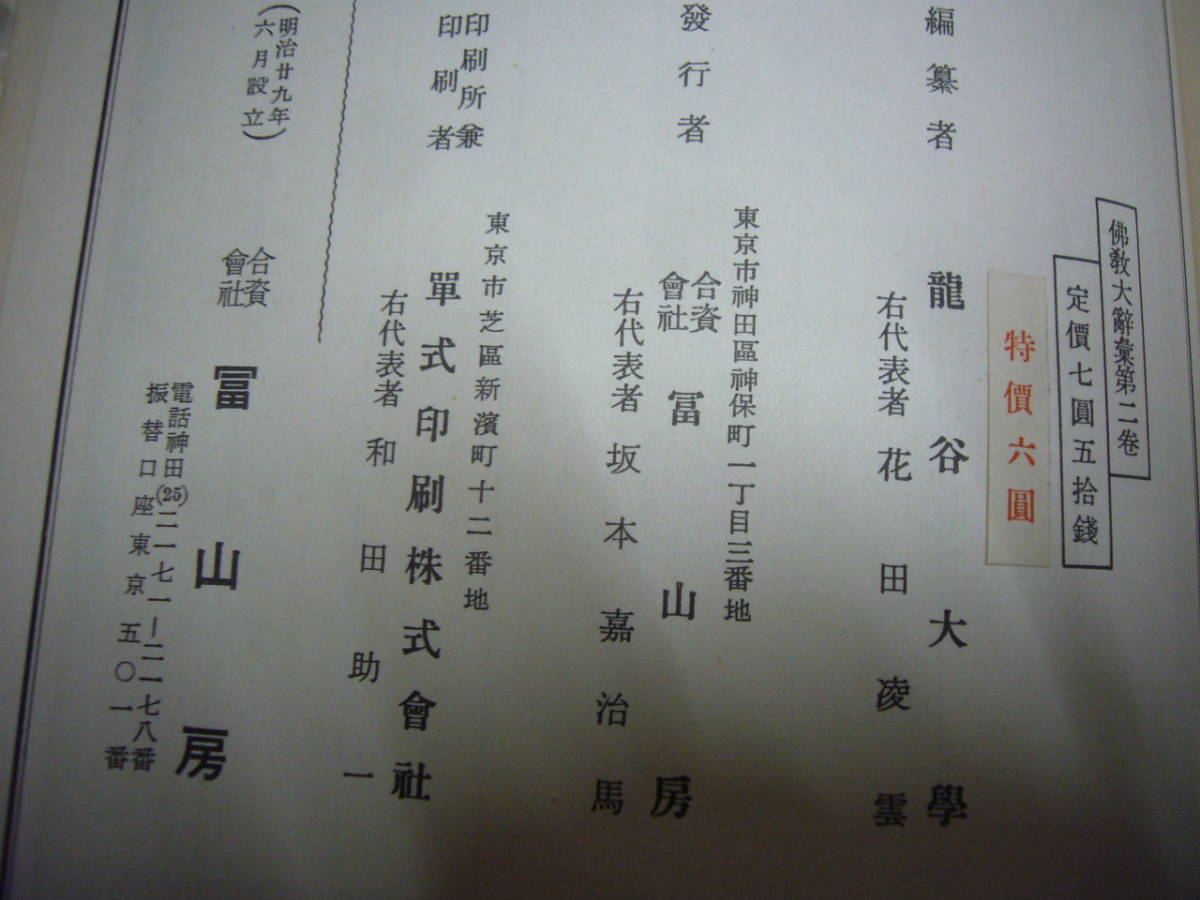 佛敎大辭彙第二卷
定價七圓五拾錢
特價六圓
編纂者
龍谷大學
右代表者花田凌雲
發行者
東京市神田區神保町一丁目三番地
合資會社冨山房
右代表者坂本嘉治馬
印刷所兼
印刷者
東京市芝區新濱町十二番地
單式印刷株式會社
右代表者和田助一
(明治廿九年
六月設立)
合資會社冨山房
電話神田(25)二一七一―二一七八番
振替口座東京五〇一番